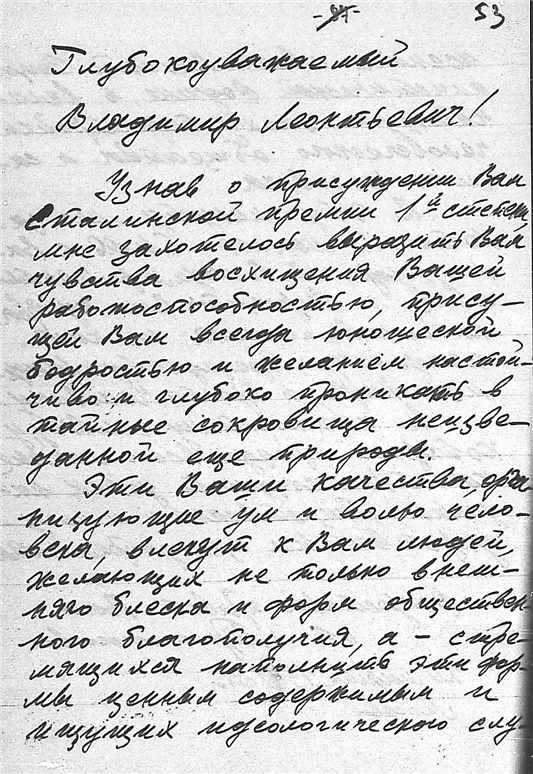 53
Глубокоуважаемый
Владимир Леонтьевич!
Узнав о присуждении Вам
Сталинской премии 1й степени,
мне захотелось выразить Вам
чувства восхищения Вашей
работоспособностью, прису-
щей Вам всегда юношеской
бодростью и желанием настой-
чиво и глубоко проникать в
тайные сокровища неизве-
данной еще природы.
Эти Ваши качества, орга-
низующие ум и волю чело-
века, влекут к Вам людей,
желающих не только внеш-
няго блеска и форм обществен
ного благополучия, а - стре-
мящихся наполнить эти фор-
мы ценным содержимым и
ищущих идеологического слу-